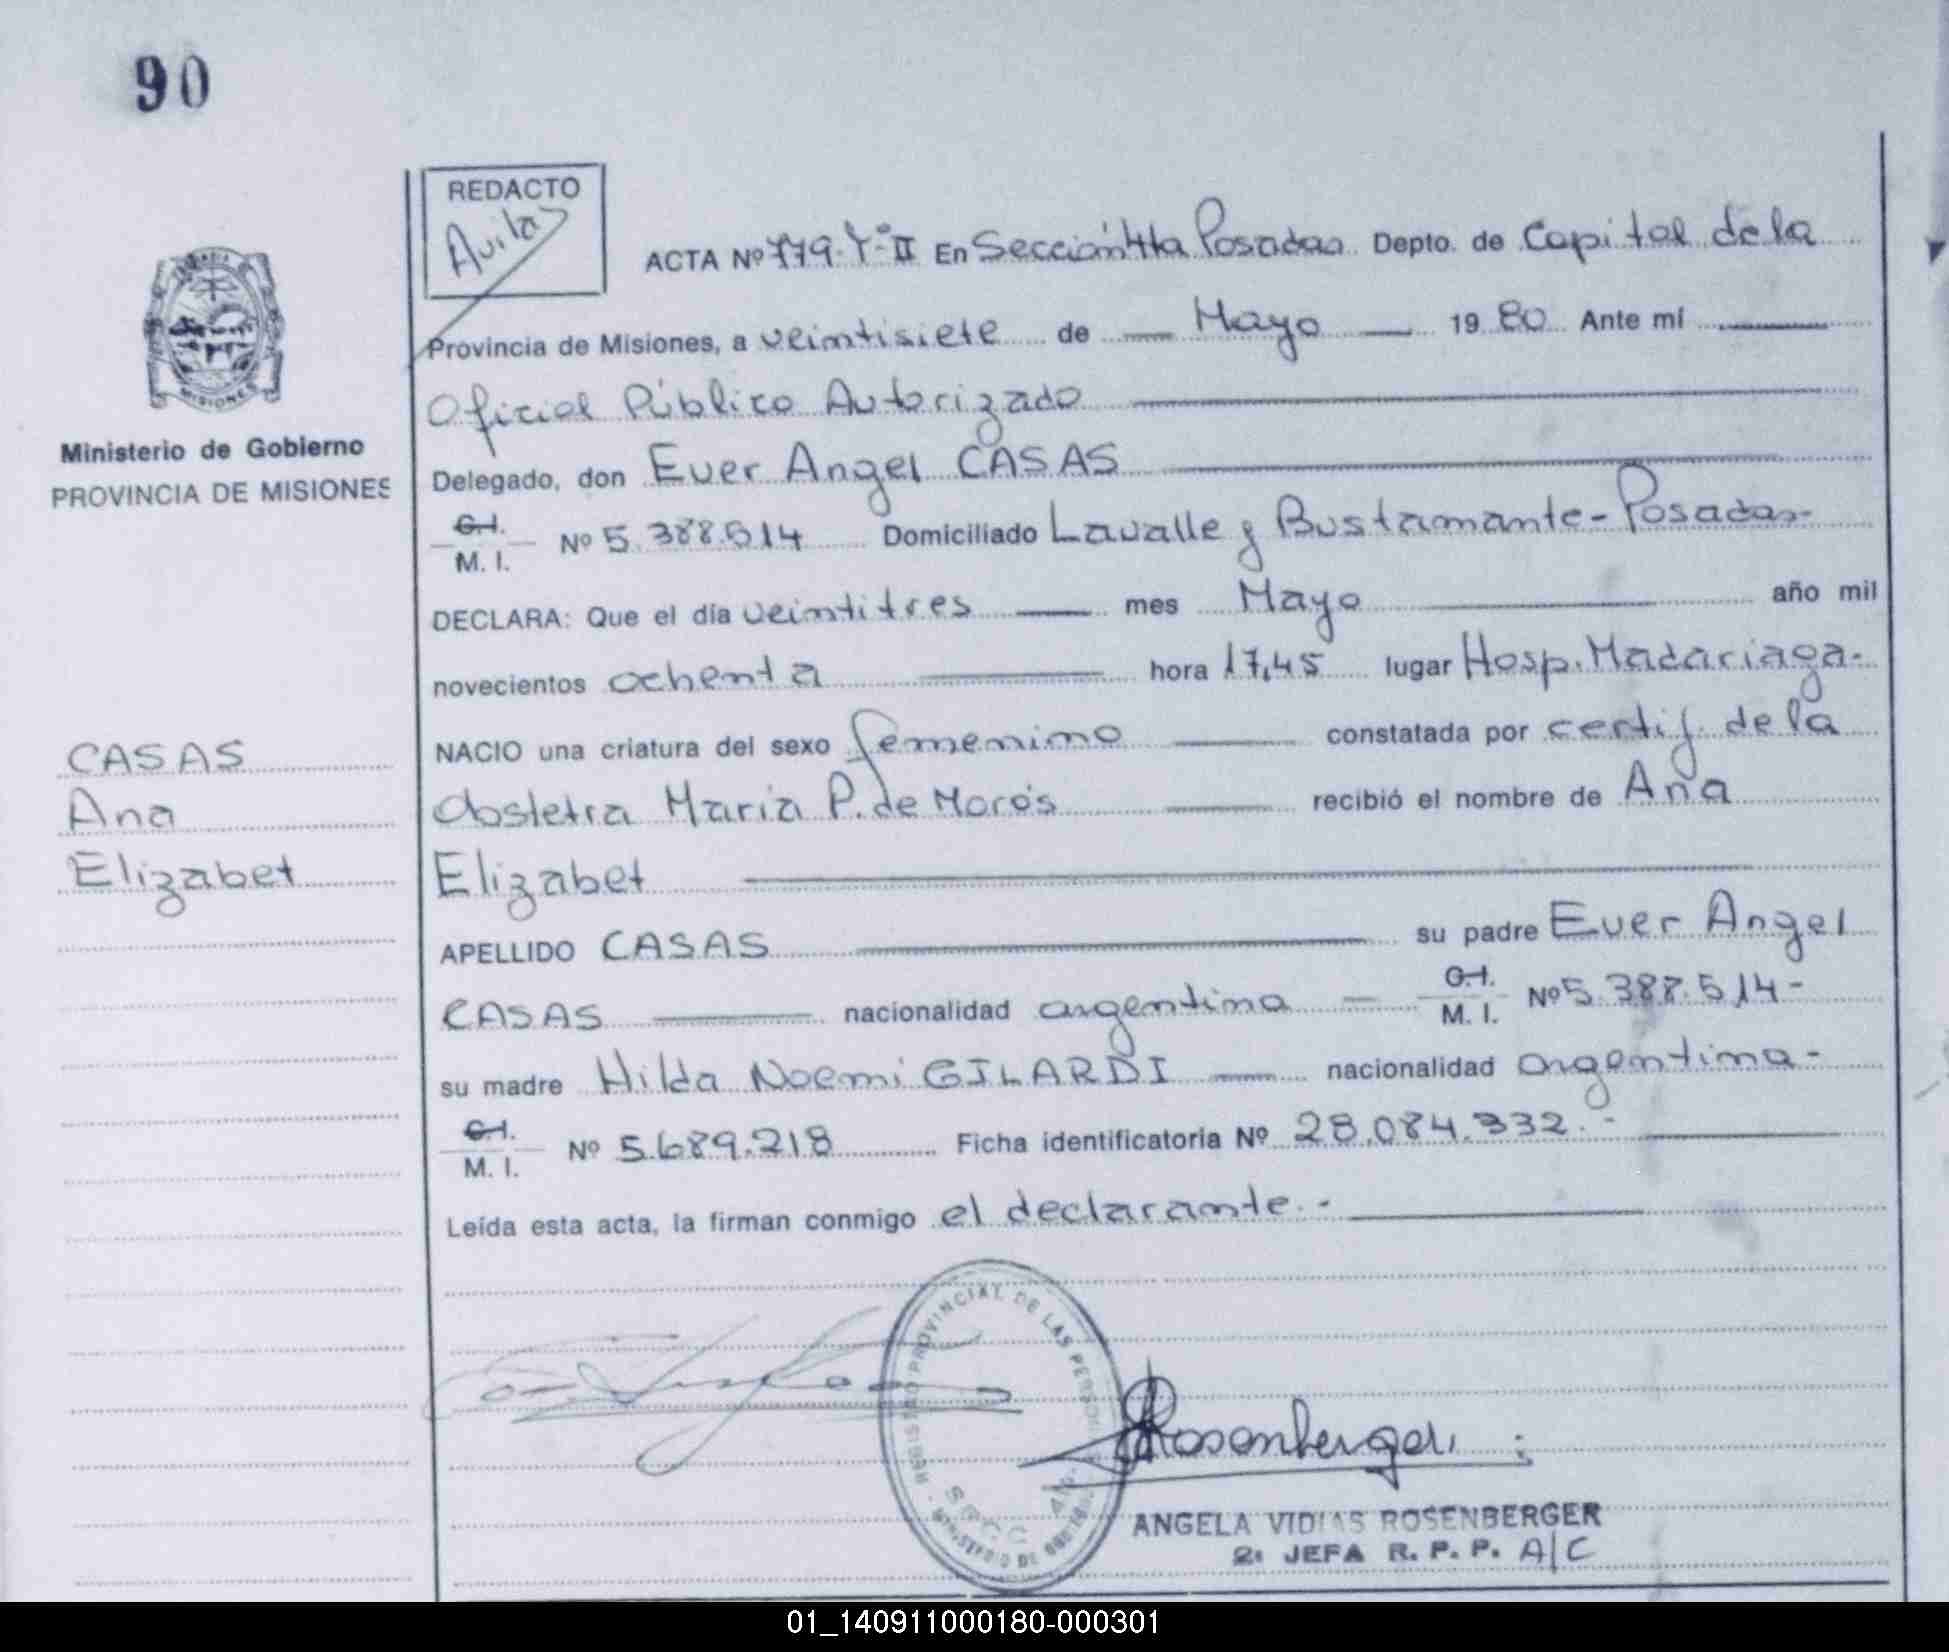 90
REDACTO
Avilas
ACTA Nº 779. Tº II En Sección 4ta Posadas Depto. de Capital de la
Provincia de Misiones, a veintisiete de Mayo 19 80 Ante mí
Oficial Público Autorizado
Delegado, don Ever Angel CASAS
C.I.
M. I. Nº 5.388.514 Domiciliado Lavalle y Bustamante - Posadas -
DECLARA: Que el día veintitres mes Mayo año mil
novecientos ochenta hora 17,45 lugar Hosp. Madariaga -
NACIO una criatura del sexo femenino constatada por certif. de la
obstetra Maria P. de Morós recibió el nombre de Ana
Elizabet
APELLIDO CASAS su padre Ever Angel
CASAS nacionalidad argentina C.I.
M. I. Nº 5.388.514 -
su madre Hilda Noemi GILARDI nacionalidad argentina -
C.I.
M. I. Nº 5.689.218 Ficha identificatoria Nº 28.084.332. -
Leída esta acta, la firman conmigo el declarante. -
MISIONES
Ministerio de Gobierno
PROVINCIA DE MISIONES
CASAS
Ana
Elizabet
REGISTRO PROVINCIAL DE LAS PERSONAS
MINISTERIO DE GOBIERNO
Rosenberger
ANGELA VIDIAS ROSENBERGER
2: JEFA R. P. P. A/C
01_140911000180-000301